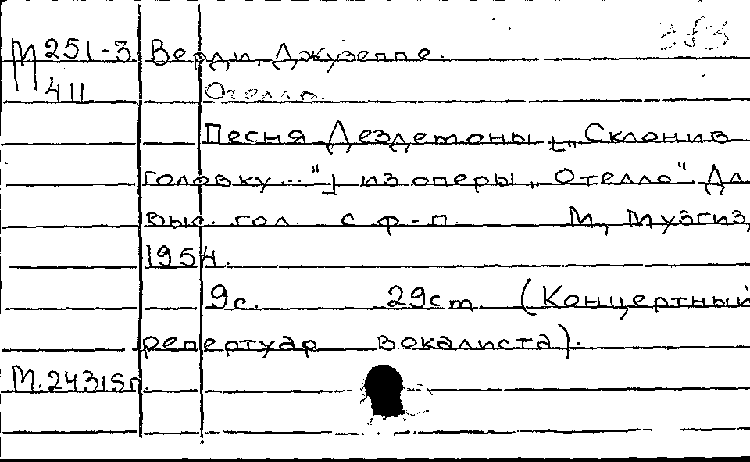 М 251-3 Верди, Джузеппе. 353
411 Отелло
Песня Дездемоны [„Склонив
головку..."] из оперы „Отелло". Дл
выс. гол. с ф-п. М, Музгиз,
1954.
9с. 29ст. (Концертный
репертуар вокалиста).
М.24315г.